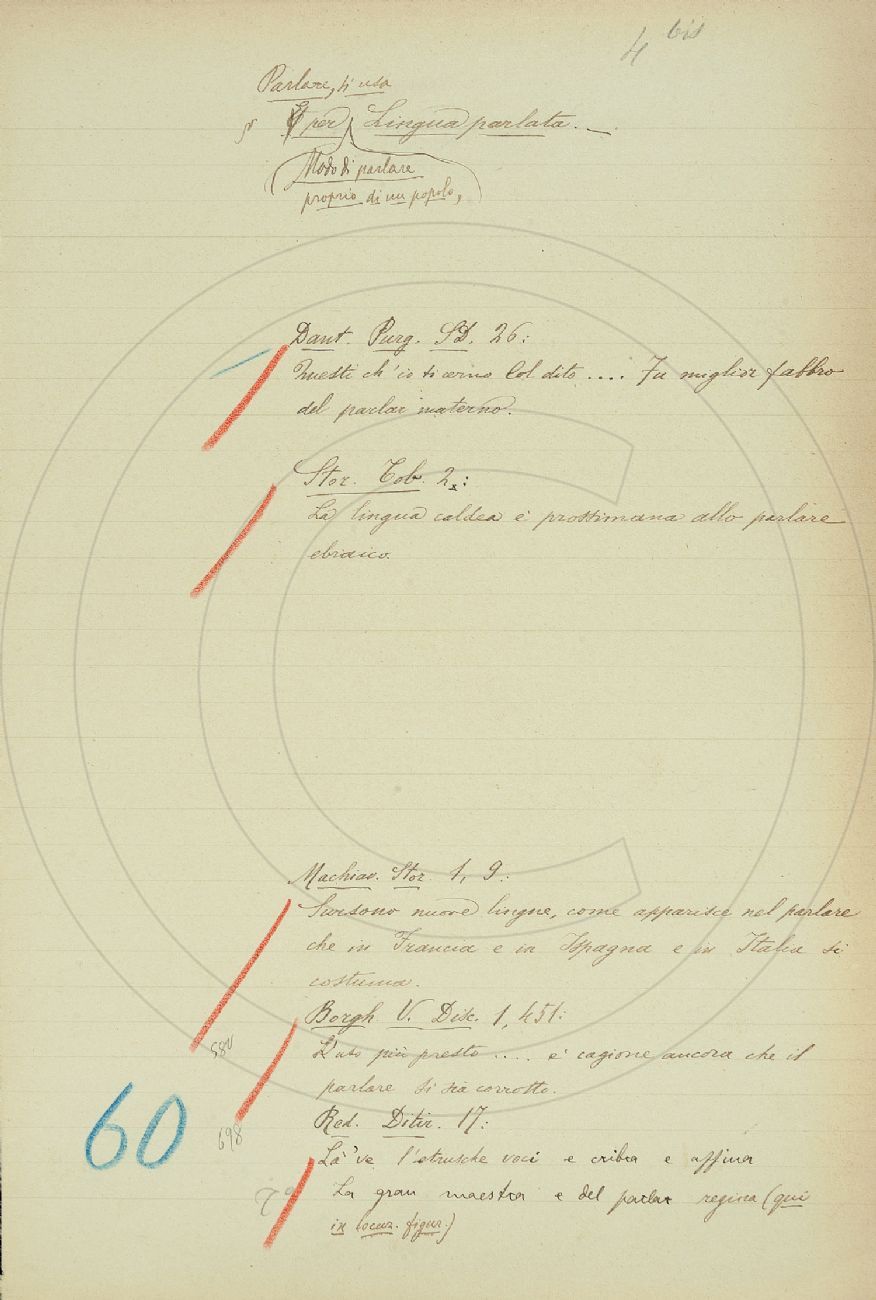 4 bis
Parlare, si usa
per Lingua parlata. —
Modo di parlare
proprio di un popolo,
Dant. Purg. SD. 26:
Questi ch' io ti cerno Col dito .... Fu miglior fabbro
del parlar materno.
Stor. Tob. 2:
La lingua caldea è prossimana allo parlare
ebraico.
Machiav. Stor. 1, 9:
Sursono nuove lingue, come apparisce nel parlare
che in Francia e in Ispagna e in Italia si
costuma.
Borgh V. Disc. 1, 451:
L'uso più presto .... è cagione ancora che il
parlare si sia corrotto.
60
698
Red. Ditir. 17:
Là 've l'etrusche voci e cribra e affina
La gran maestra e del parlar regina (qui
in locuz. figur.)